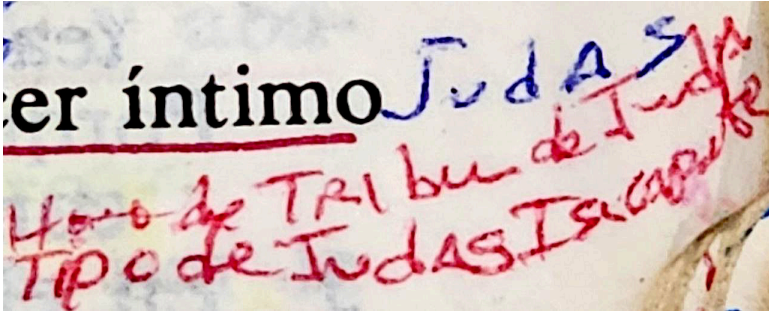 cer íntimo JudAS
de TRIbu de Judá
TIPO de JudAS Iscariote